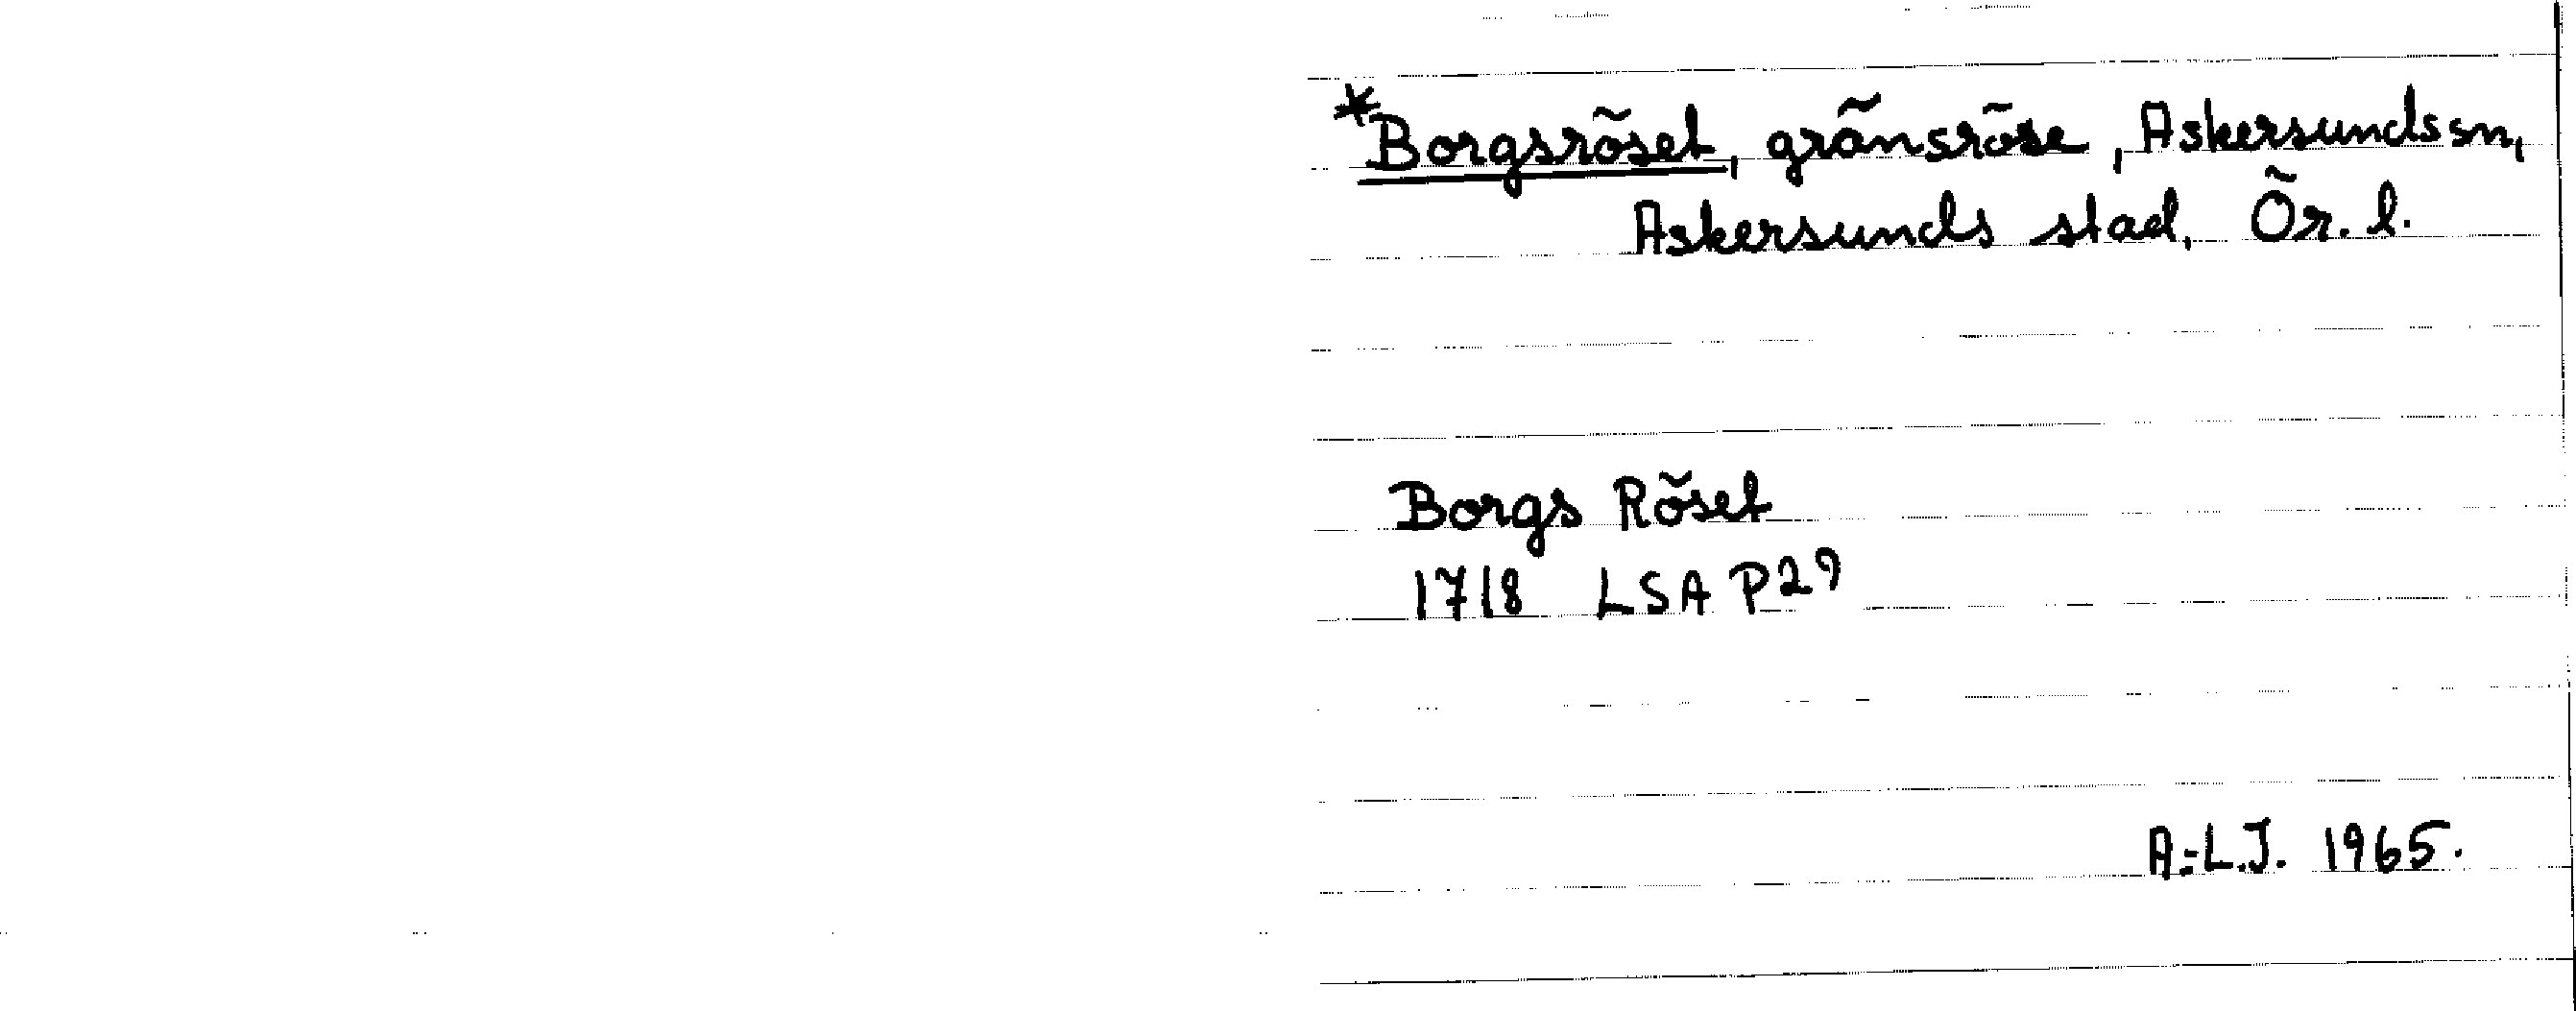 *Borgsröset, gränsröse, Askersunds sn,
Askersunds stad, Ör. l.
Borgs Röset
1718 LSA P29
A-L.J. 1965.